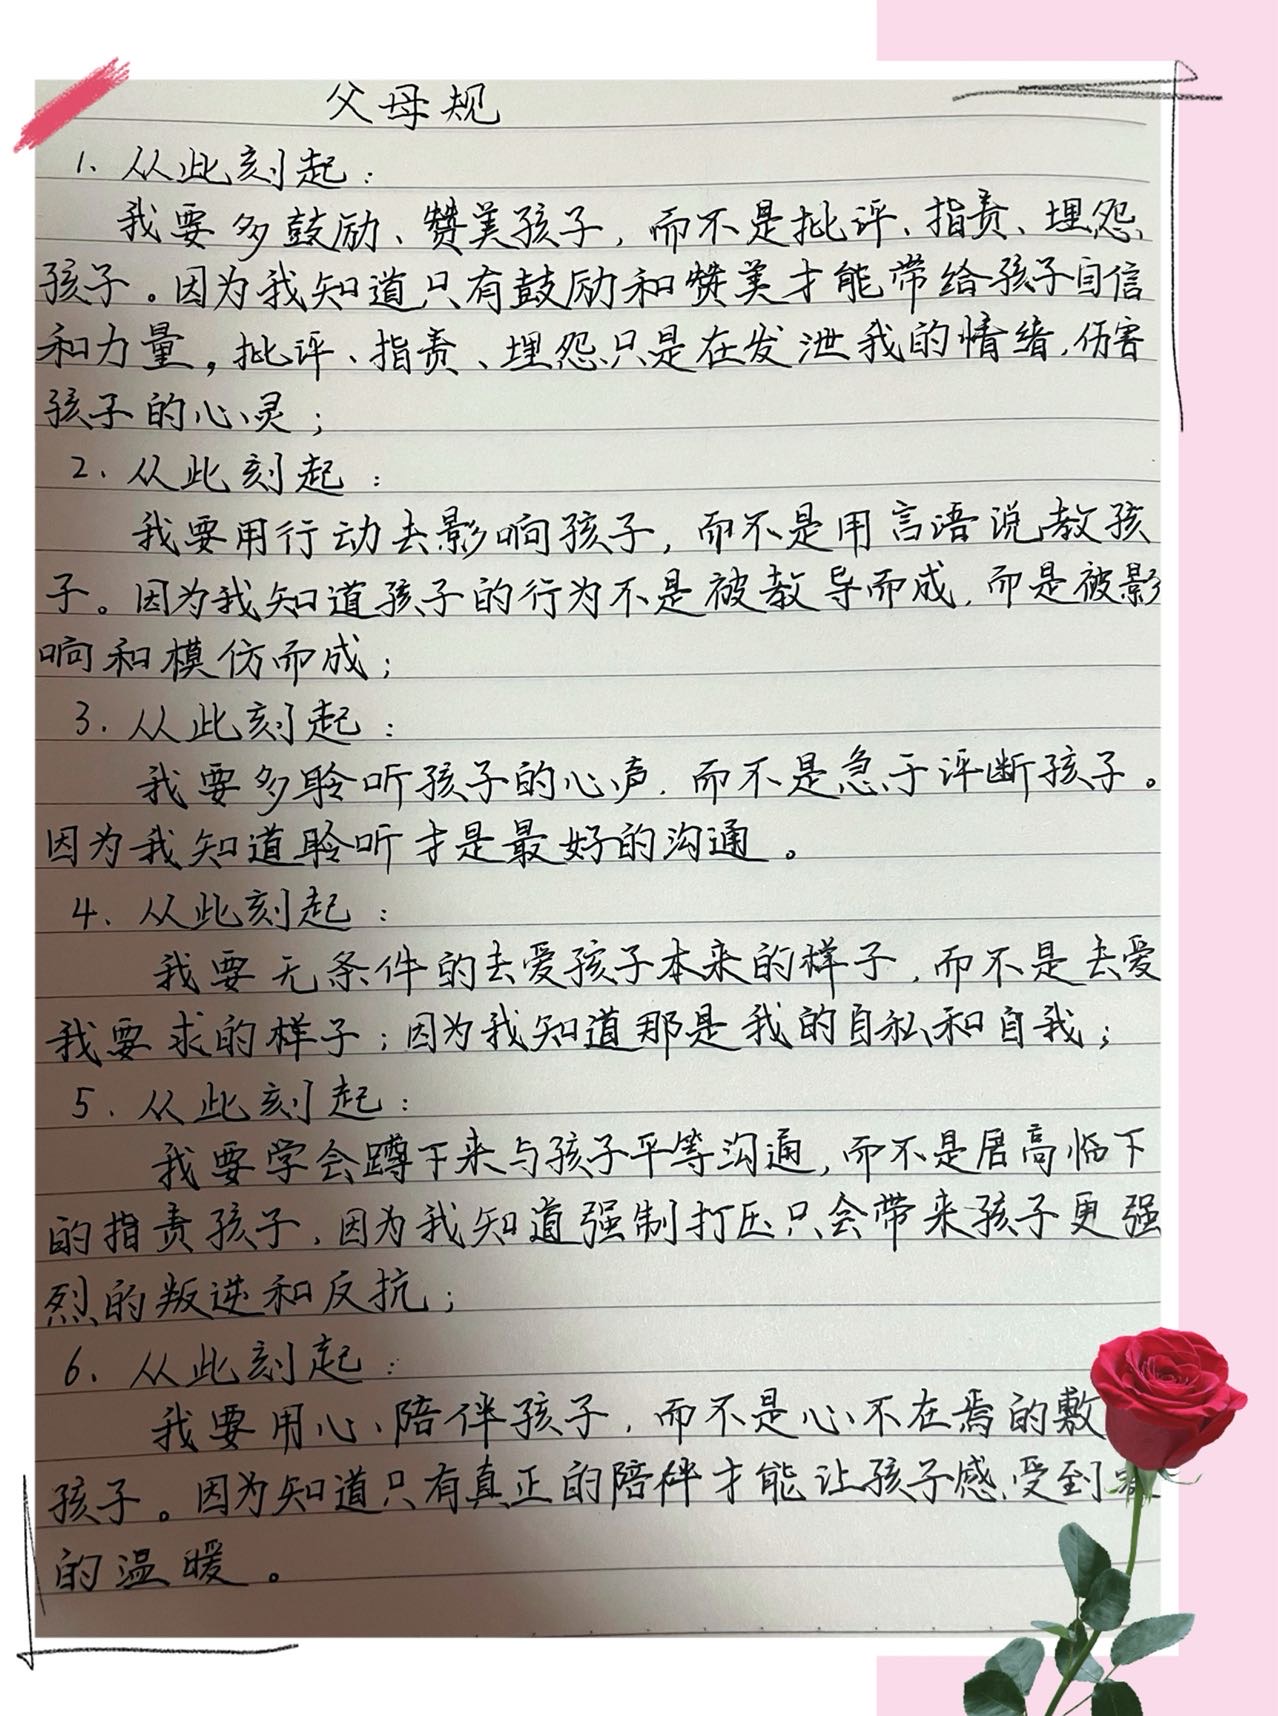 父母规
1、从此刻起：
我要多鼓励、赞美孩子，而不是批评、指责、埋怨
孩子。因为我知道只有鼓励和赞美才能带给孩子自信
和力量。批评、指责、埋怨只是在发泄我的情绪，伤害
孩子的心灵；
2．从此刻起：
我要用行动去影响孩子，而不是用言语说教孩
子。因为我知道孩子的行为不是被教导而成，而是被影
响和模仿而成；
3．从此刻起：
我要多聆听孩子的心声，而不是急于评断孩子。
因为我知道聆听才是最好的沟通。
4、从此刻起：
我要无条件的去爱孩子本来的样子，而不是去爱
我要求的样子；因为我知道那是我的自私和自我；
5．从此刻起：
我要学会蹲下来与孩子平等沟通，而不是居高临下
的指责孩子，因为我知道强制打压只会带来孩子更强
烈的叛逆和反抗；
6、从此刻起：
我要用心陪伴孩子，而不是心不在焉的敷
孩子。因为知道只有真正的陪伴才能让孩子感受到
的温暖。